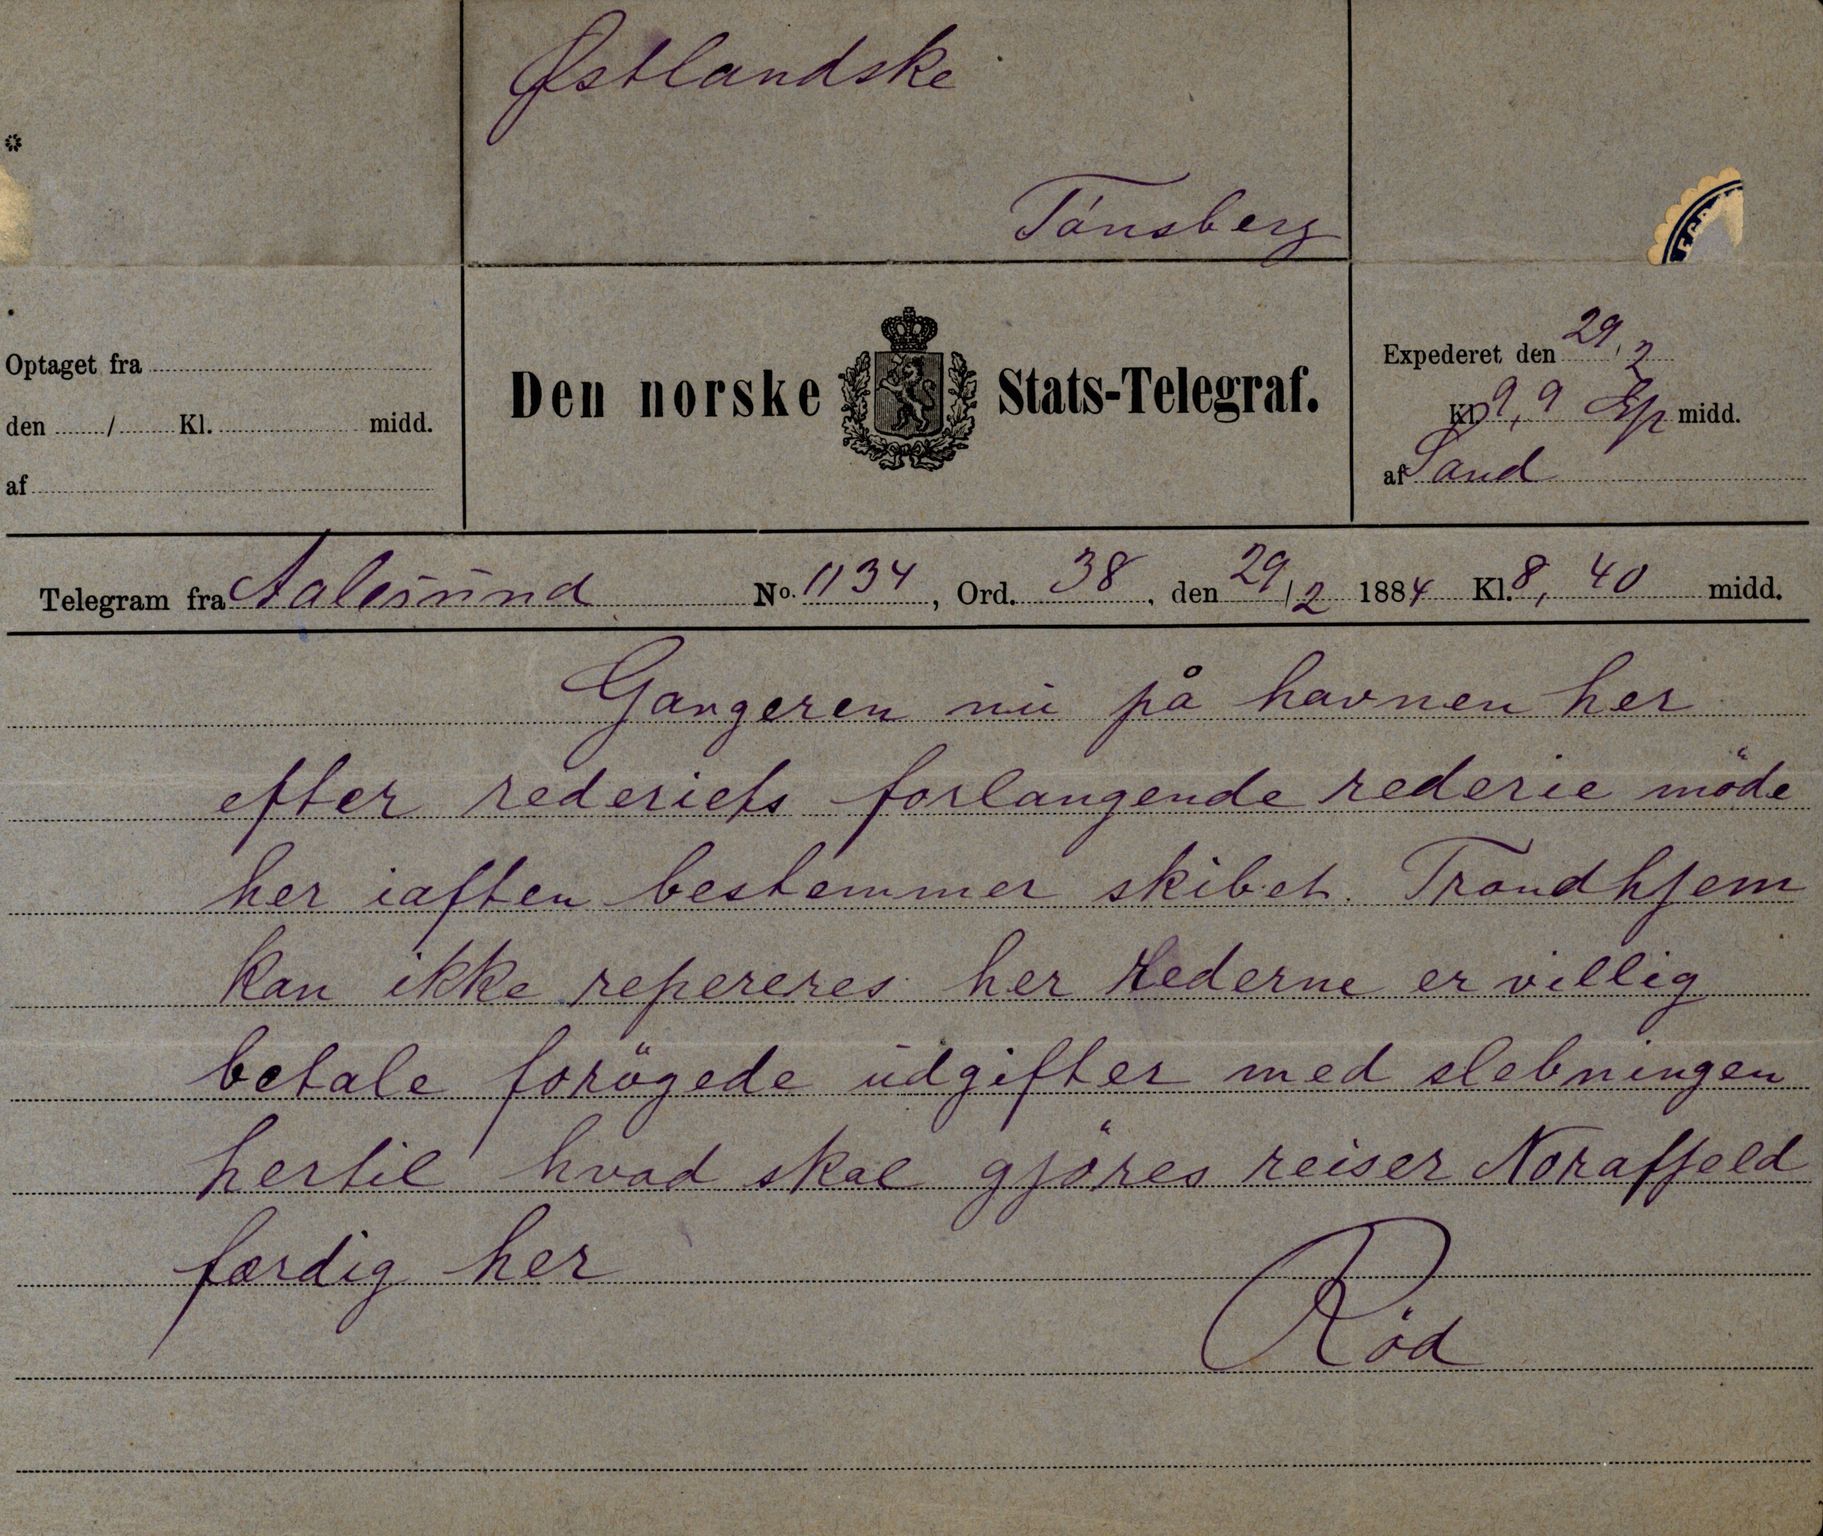 Østlandske
Tönsberg
Optaget fra
den / Kl. midd.
af
Den norske Stats-Telegraf.
Expederet den 29/2
Kl. 9,9 Ep midd.
af Sand
Telegram fra Aalesund No. 1134, Ord. 38, den 29/2 1884 Kl. 8,40 midd.
Gangeren nu på havnen her
efter rederiets forlangende rederie möde
her iaften bestemmer skibet. Trondhjem
kan ikke repereres her Rederne er villig
betale forögede udgifter med slebningen
hertil hvad skal gjöres reiser Norafjeld
færdig her
Röd